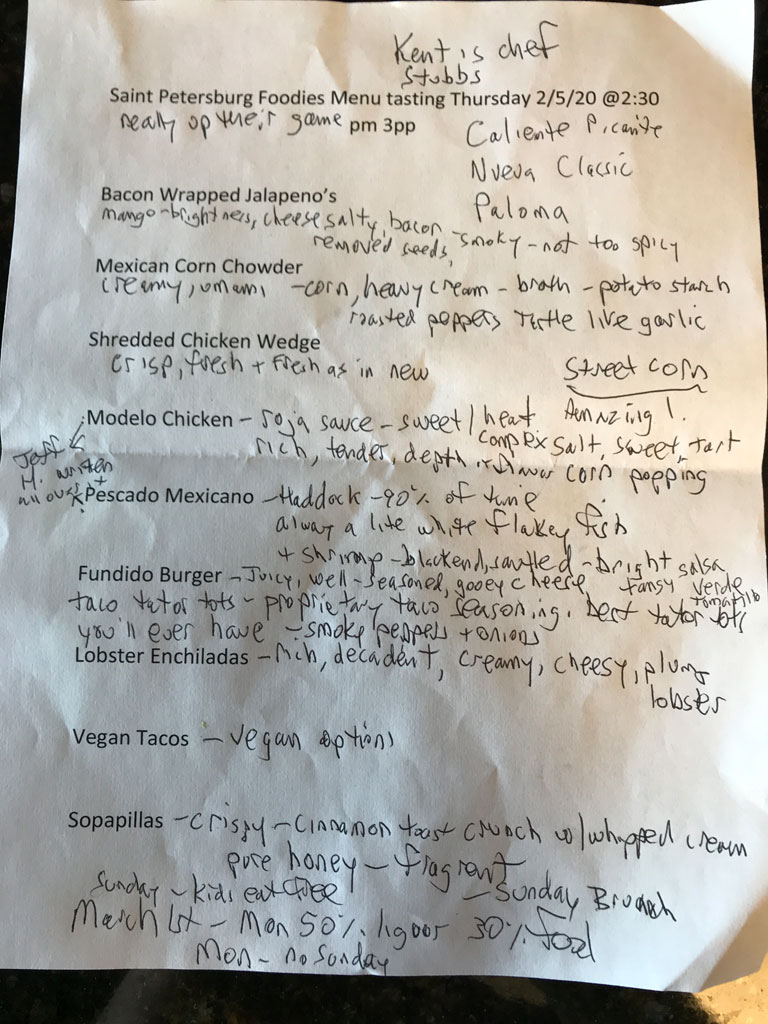 Kent is chef
Stubbs
Saint Petersburg Foodies Menu tasting Thursday 2/5/20 @2:30
really up their game pm 3pp
Caliente Picante
Nueva Classic
Paloma
Bacon Wrapped Jalapeno's
mango-brightness, cheese salty, bacon
removed seeds, smoky - not too spicy
Mexican Corn Chowder
creamy, umami - corn, heavy cream - broth - potato starch
roasted peppers like garlic
Shredded Chicken Wedge
crisp, fresh + fresh as in new
Street corn
Amazing!
Modelo Chicken - soja sauce - sweet/heat
complex salt, sweet, tart
rich, tender, depth flavor corn popping
Jeff
H. written
all over
Pescado Mexicano - Haddock - 90% of time
always a lite white flakey fish
+ shrimp - blackend, sautled - bright salsa
verde
tomatillo
Fundido Burger - Juicy, well-seasoned, gooey cheese, tansy
taco tator tots - proprietary taco seasoning. best tator tots
you'll ever have - smoke peppers + onions
Lobster Enchiladas - rich, decadent, creamy, cheesy, plump
lobster
Vegan Tacos - vegan options
Sopapillas - crispy - cinnamon toast crunch w/whipped cream
pure honey - fragrent
Sunday - kids eat free - Sunday Brunch
March 1st - Mon 50% liquor 30% food
Mon - no Sunday